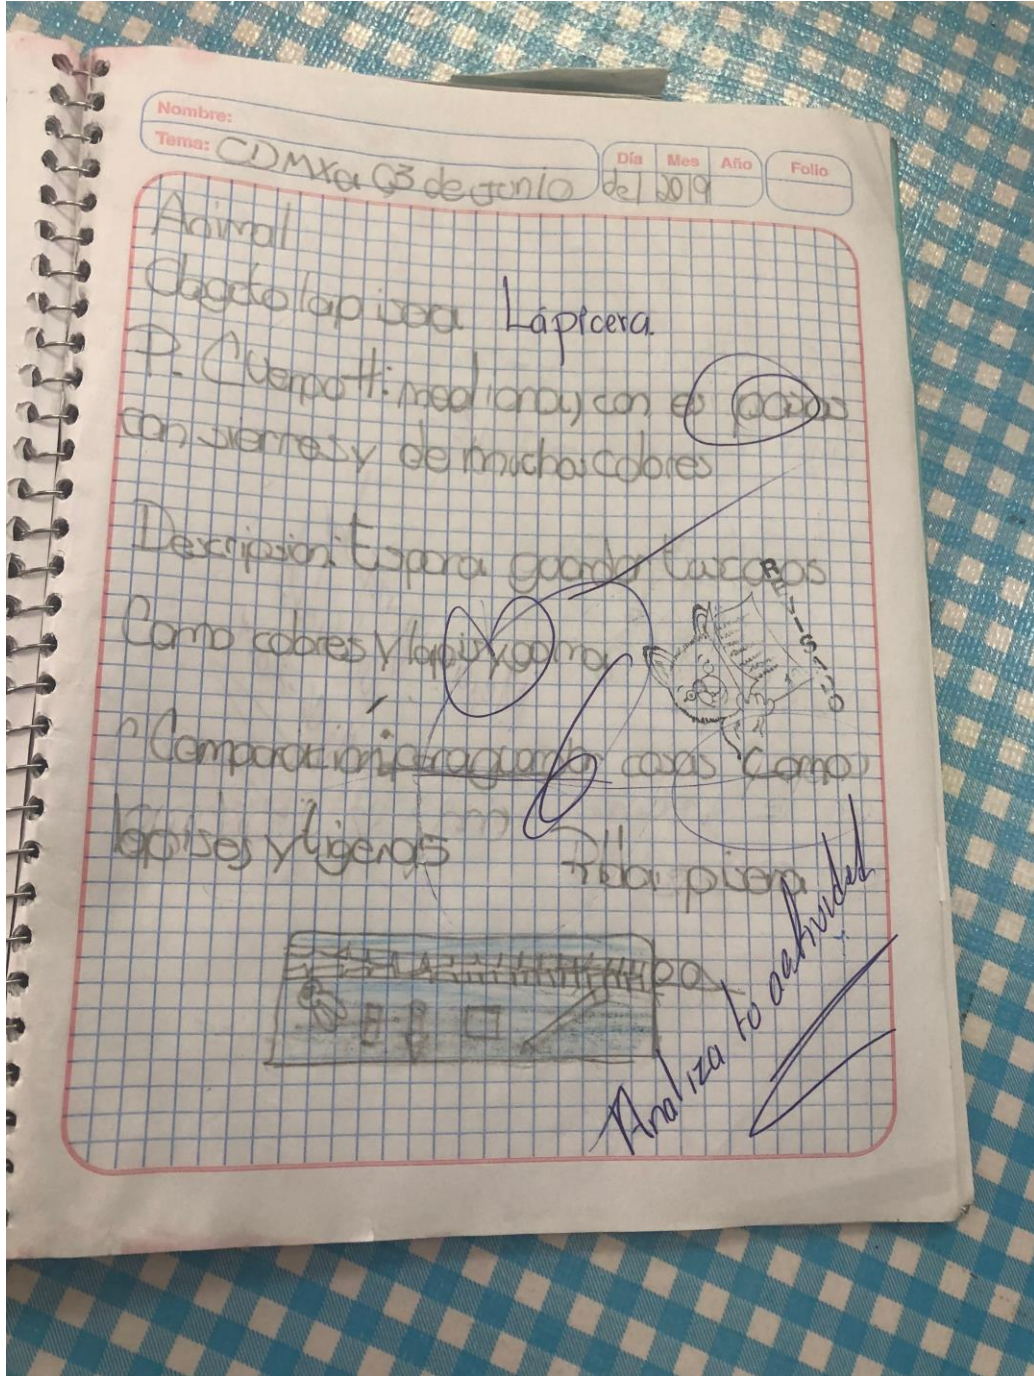 Nombre:
Tema: CDMX a 03 de junio del 2019
Día Mes Año Folio
Animal
Obgeto lapisera Lapicera
P. Cuerpo H: mediano y con es
con sierres y de muchos colores
Descripsion: Es para guardar tus cosas
Como colores y lapis y goma
REVISADO
Comparación: para guardar cosas como
lapises y tigeras
Analiza tu actividad